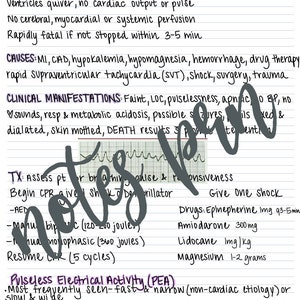 Ventricles quiver, no cardiac output or pulse
No cerebral, myocardial or systemic perfusion
Rapidly fatal if not stopped within 3-5 min
CAUSES: MI, CAD, hypokalemia, hypomagnesia, hemorrhage, drug therapy
rapid supraventricular tachycardia (SVT), shock, surgery, trauma
CLINICAL MANIFESTATIONS: Faint, LOC, pulselessness, apnea, no BP, no
♥sounds, resp & metabolic acidosis, possible seizures, pupils fixed &
dialated, skin mottled, DEATH results
notes pen
TX: Assess pt for breathing, pulse & responsiveness
Begin CPR, give 1 shock defibrillator Give one shock
-AED Drugs: Epinephrine 1mg q3-5min
-Manual biphasic (120-200 joules) Amiodarone 300mg
-Manual monophasic (360 joules) Lidocaine 1mg/kg
Resume CPR (5 cycles) Magnesium 1-2 grams
Pulseless Electrical Activity (PEA)
-Most frequently seen- fast & narrow (non-cardiac etiology) or
slow & wide